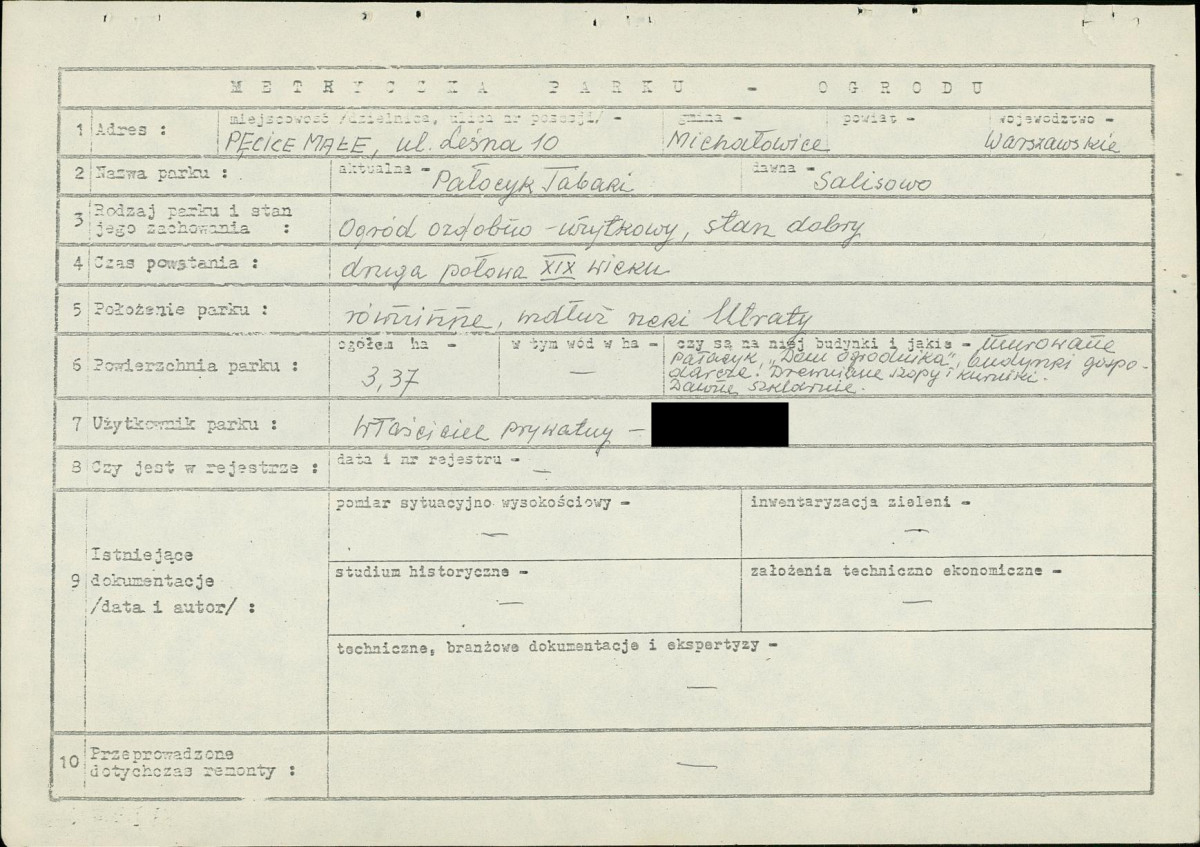 METRYCZKA PARKU - OGRODU
1 Adres : miejscowość /dzielnica, ulica nr posesji/ - gmina - powiat - województwo -
PĘCICE MAŁE, ul. Leśna 10 Michałowice Warszawskie
2 Nazwa parku : aktualna - Pałacyk Tabaki dawna - Salisowo
3 Rodzaj parku i stan
jego zachowania : Ogród ozdobno-użytkowy, stan dobry
4 Czas powstania : druga połowa XIX wieku
5 Położenie parku : równinne, wzdłuż rzeki Utraty
6 Powierzchnia parku : ogółem ha - 3,37 w tym wód w ha - — czy są na niej budynki i jakie - murowane
pałacyk, "Dom ogrodnika", budynki gospo-
darcze. Drewniane szopy i kurniki.
Dawne szklarnie.
7 Użytkownik parku : Właściciel prywatny -
8 Czy jest w rejestrze : data i nr rejestru - —
9 Istniejące
dokumentacje
/data i autor/ :
pomiar sytuacyjno wysokościowy - —
inwentaryzacja zieleni - —
studium historyczne - —
założenia techniczno ekonomiczne - —
techniczne, branżowe dokumentacje i ekspertyzy - —
10 Przeprowadzone
dotychczas remonty : —